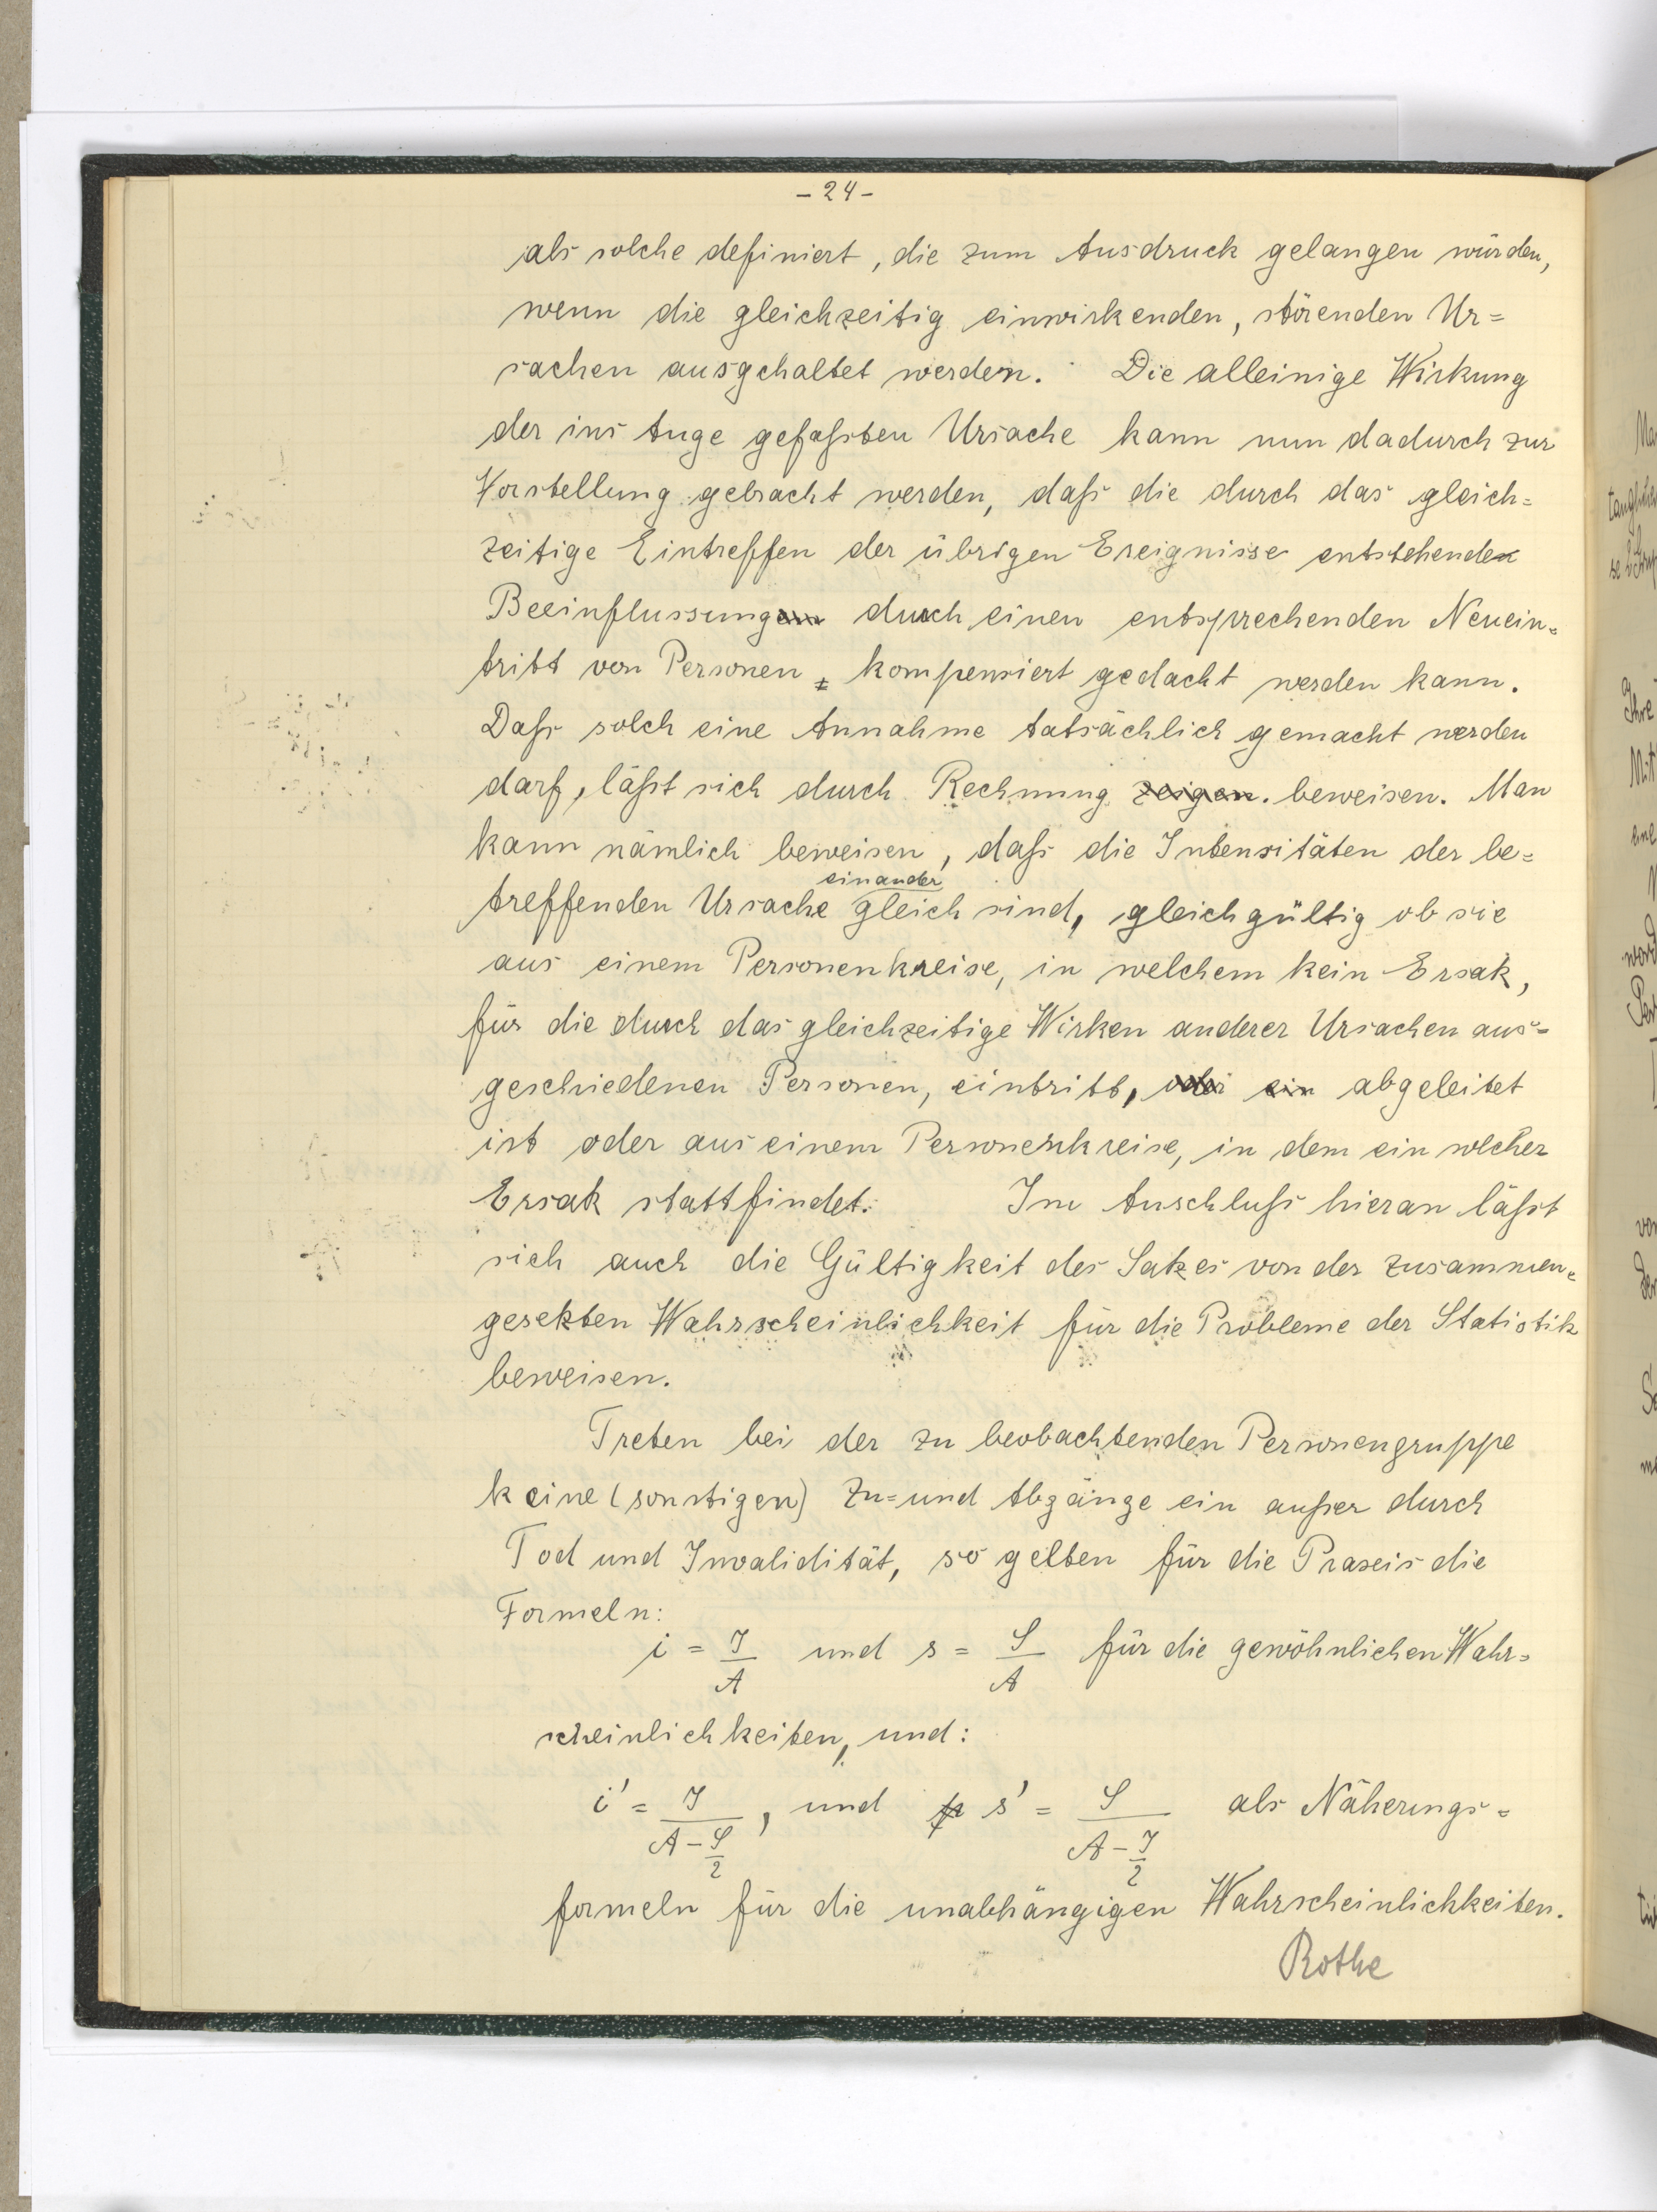 - 24 -
als solche definiert, die zum Ausdruck gelangen würden,
wenn die gleichzeitig einwirkenden, störenden Ur=
sachen ausgschaltet werden. Die alleinige Wirkung
der ins Auge gefaßten Ursache kann nun dadurch zur
Vorstellung gebracht werden, daß die durch das gleich=
zeitige Eintreffen der übrigen Ereignisse entstehende
Beeinflussung durch einen entsprechenden Neuein=
tritt von Personen kompensiert gedacht werden kann.
Daß solch eine Annahme tatsächlich gemacht werden
darf, läßt sich durch Rechnung zeigen. beweisen. Man
kann nämlich beweisen, daß die Intensitäten der be=
einander
treffenden Ursache gleich sind, gleichgültig ob sie
aus einem Personenkreise, in welchem kein Ersatz,
für die durch das gleichzeitige Wirken anderer Ursachen aus=
geschiedenen Personen, eintritt, oder ein abgeleitet
ist oder aus einem Personenkreise, in dem ein solcher
Ersatz stattfindet. Im Anschluß hieran läßt
sich auch die Gültigkeit des Satzes von der zusammen=
gesetzten Wahrscheinlichkeit für die Probleme der Statistik
beweisen.
Treten bei der zu beobachtenden Personengruppe
keine (sonstigen) Zu= und Abgänge ein außer durch
Tod und Invalidität, so gelten für die Praxis die
Formeln:
i = J/A und s = S/A für die gewöhnlichen Wahr=
scheinlichkeiten, und:
i' = J/(A - S/2), und s' = S/(A - J/2) als Näherungs=
formeln für die unabhängigen Wahrscheinlichkeiten.
Rothe